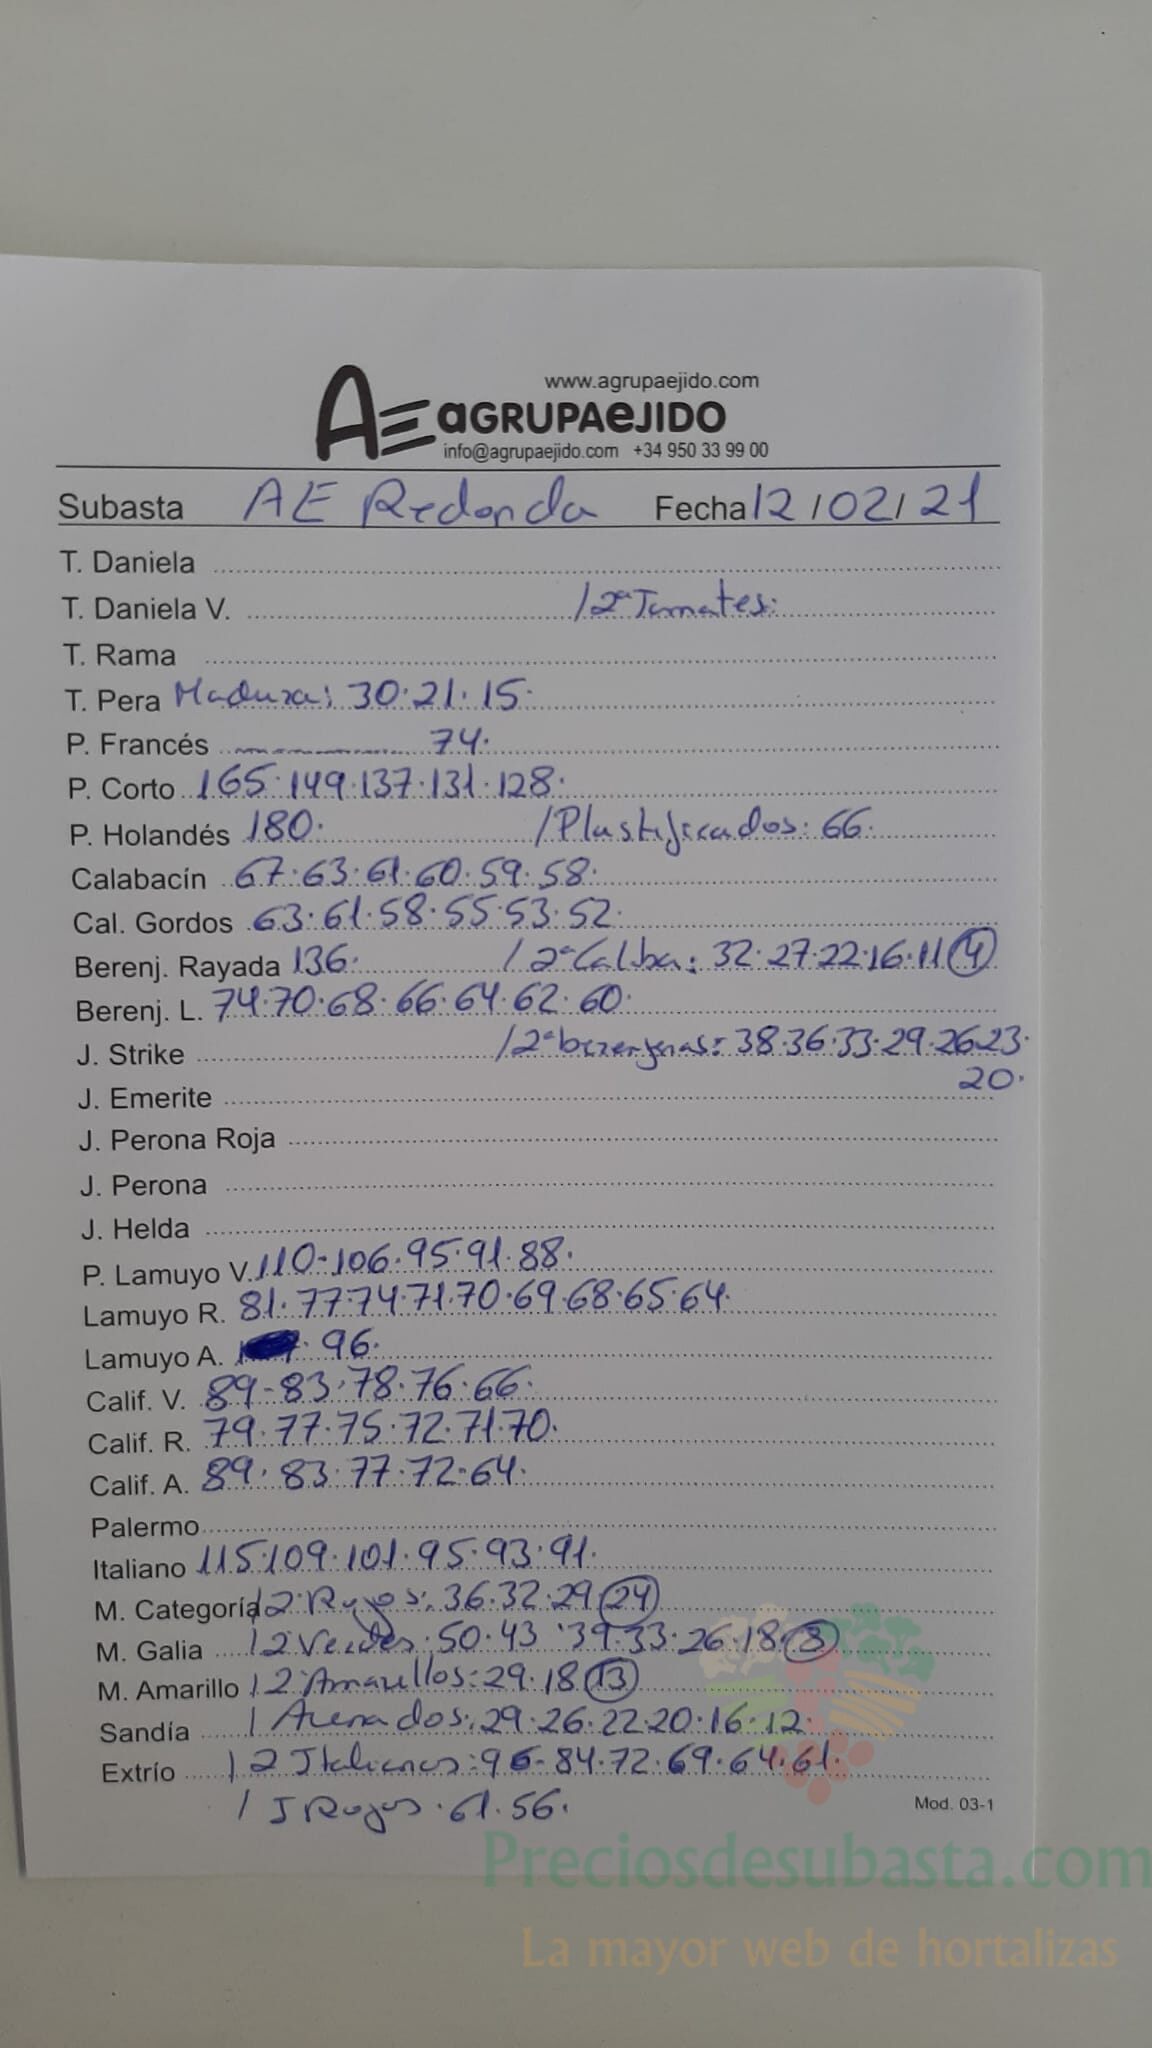 www.agrupaejido.com
AE aGRUPAeJIDO
info@agrupaejido.com +34 950 33 99 00
Subasta AE Redonda Fecha 12/02/21
T. Daniela
T. Daniela V. /2ª Tomates:
T. Rama
T. Pera Madura: 30·21·15·
P. Francés 74·
P. Corto 165·149·137·131·128·
P. Holandés 180· /Plastificados: 66·
Calabacín 67·63·61·60·59·58·
Cal. Gordos 63·61·58·55·53·52·
Berenj. Rayada 136· /2ª Calba: 32·27·22·16·11 4
Berenj. L. 74·70·68·66·64·62·60·
J. Strike /2ª berenjenas: 38·36·33·29·26·23·
20·
J. Emerite
J. Perona Roja
J. Perona
J. Helda
P. Lamuyo V. 110-106·95·91·88·
Lamuyo R. 81·77·74·71·70·69·68·65·64·
Lamuyo A. 96·
Calif. V. 89-83·78·76·66·
Calif. R. 79·77·75·72·71·70·
Calif. A. 89·83·77·72·64·
Palermo
Italiano 115·109·101·95·93·91·
M. Categoría /2 Rojos: 36·32·29 24
M. Galia /2 Verdes: 50·43·39·33·26·18·8
M. Amarillo /2 Amarillos: 29·18 13
Sandía / Asurados: 29·26·22·20·16·12·
Extrío /2 Italianos: 96-84·72·69·64·61·
/ I Rojos·61·56·
Mod. 03-1
Preciosdesubasta.com
La mayor web de hortalizas